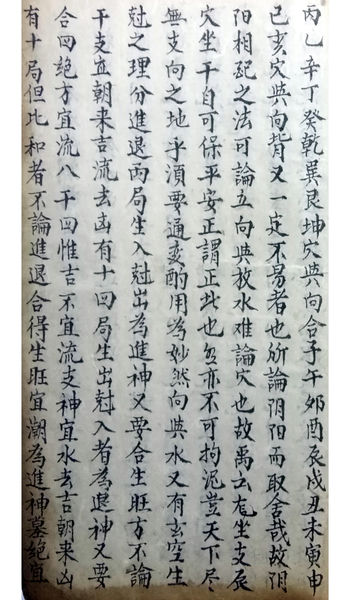 丙乙辛丁癸乾巽艮坤穴與向合子午夘酉辰戌丑未寅申
己亥穴與向背又一定不易者也所論阴阳而取舍哉故阴
阳相配之法可論立向與放水难論穴也故禹云凢坐支辰
穴坐干自可保平安正謂正此也然亦不可拘泥豈天下尽
無支向之地乎須要通变酌用為妙然向與水又有玄空生
尅之理分進退兩局生入尅出為進神又要合生旺方不論
干支宜朝来吉流去凶有十四局生出尅入者為退神又要
合四绝方宜流八干四惟吉不宜流支神宜水去吉朝来凶
有十局但比和者不論進退合得生旺宜潮為進神墓绝宜